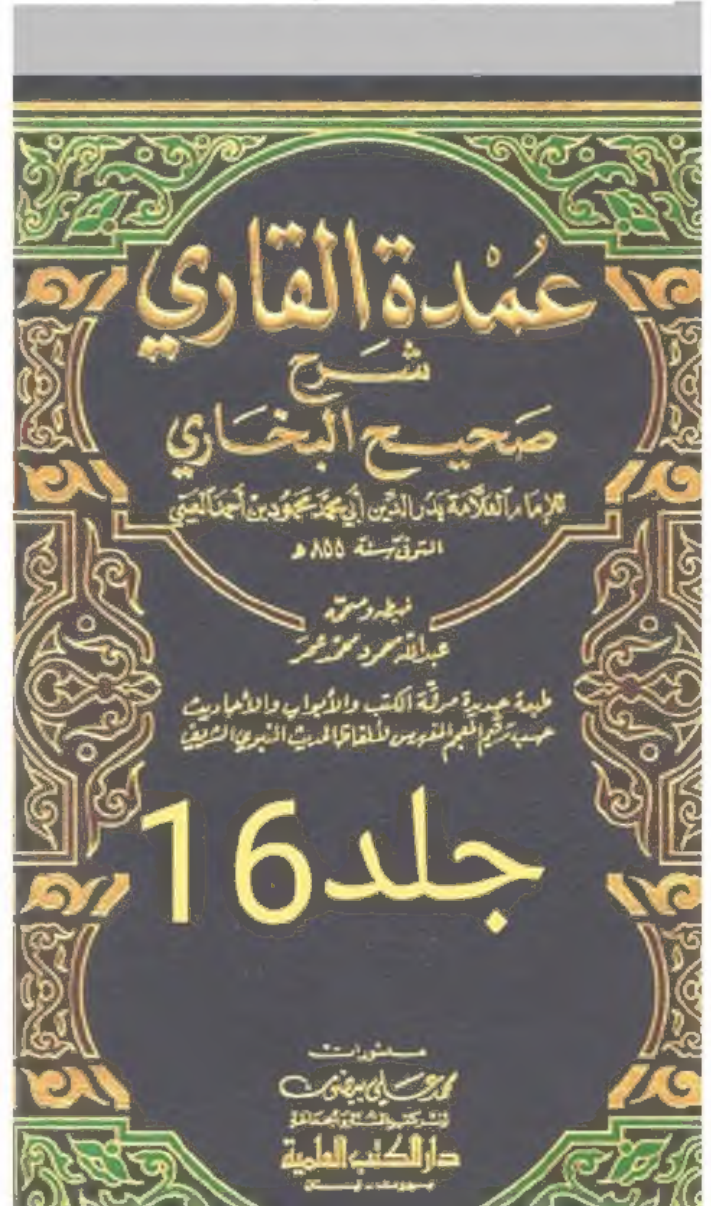 عُمْدة القاري
شَرح
صَحيح البخَاري
للإمَام العَلّامَة بَدْر الدِّين أبي محمَّد محمُود بن أحمَد العَيني
المتوفى سنة ٨٥٥ هـ
ضبطه وصححه
عبد الله محمود محمد عمر
طبعة جديدة مرقّمة الكتب والأبواب والأحاديث
حسب ترقيم المعجم المفهرس لألفاظ الحديث النبوي الشريف
جلد16
منشورات
محمد علي بيضون
لنشر كتب السنة والجماعة
دار الكتب العلمية
بيروت - لبنان